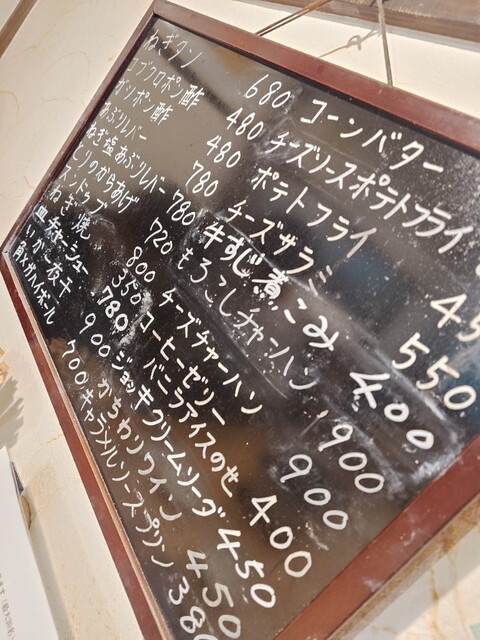 ねぎタン 680
コブクロポン酢 480
ガツポン酢 480
あぶりレバー 780
ねぎ塩あぶりレバー 780
とりのからあげ 720
スンドゥブ 800
ねぎ焼 350
皿チャーシュー 780
900
ハイボール 700
コーンバター
チーズソースポテトフライ
ポテトフライ 45
チーズサラミ 550
牛すじ煮こみ 400
もろこしチャーハン 900
チーズチャーハン 900
コーヒーゼリー 400
バニラアイスのせ 450
ジョッキクリームソーダ 450
がちわりワイン 380
キャラメルソースプリン